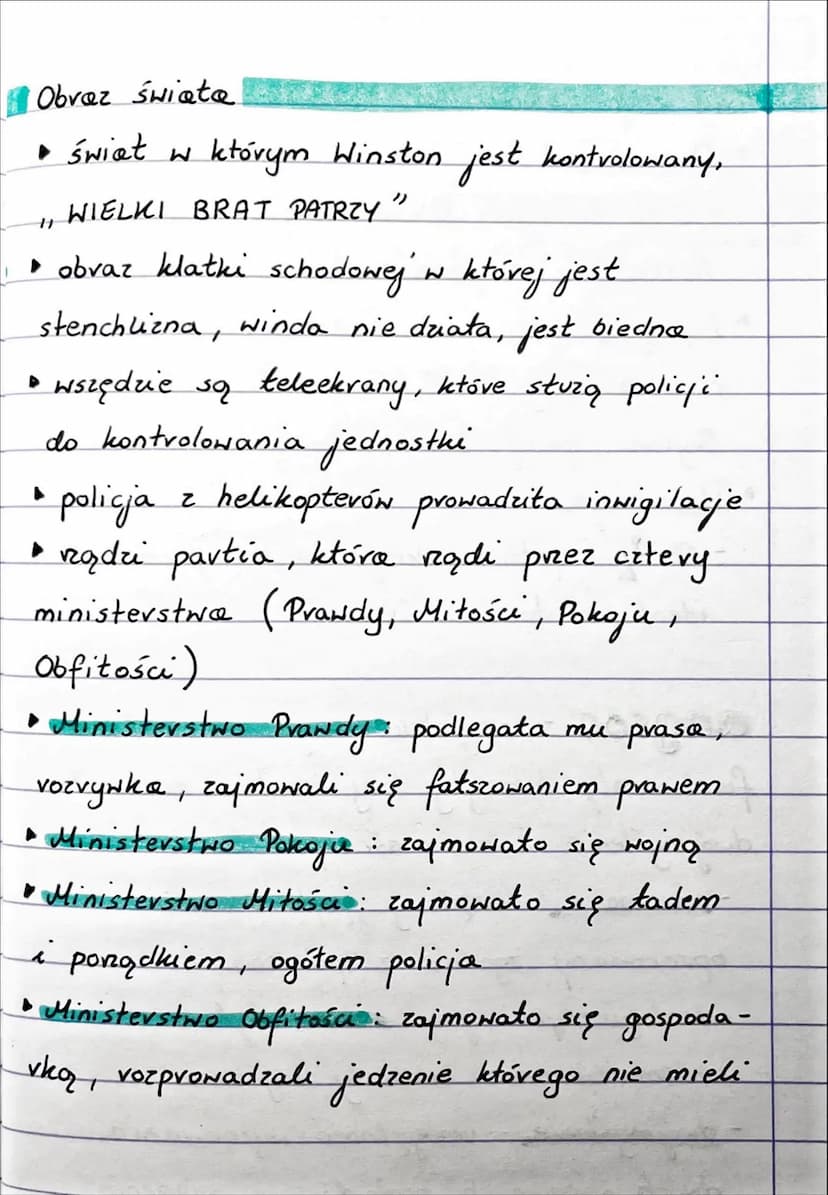 Obraz świata
‣ świat w którym Winston jest kontrolowany,
„WIELKI BRAT PATRZY”
‣ obraz klatki schodowej w której jest
stenchlizna, winda nie działa, jest biedna
‣ wszędzie są teleekrany, które służą policji
do kontrolowania jednostki
‣ policja z helikopterów prowadziła inwigilacje
‣ rządzi partia, która rządi przez cztery
ministerstwa (Prawdy, Miłości, Pokoju,
Obfitości)
‣ Ministerstwo Prawdy: podlegała mu prasa,
rozrywka, zajmowali się fałszowaniem prawem
‣ Ministerstwo Pokoju: zajmowało się wojną
‣ Ministerstwo Miłości: zajmowało się ładem
i porządkiem, ogółem policja
‣ Ministerstwo Obfitości: zajmowało się gospoda-
rką, rozprowadzali jedzenie którego nie mieli